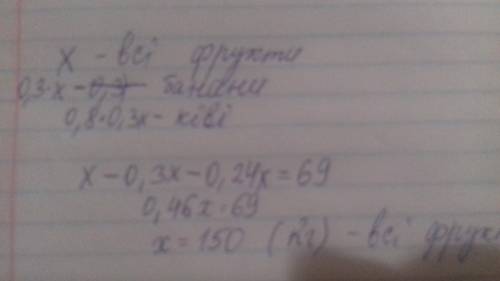 x - всі фрукти
0,3·x - банани
0,8·0,3x - ківі
x-0,3x-0,24x=69
0,46x=69
x=150 (кг) - всі